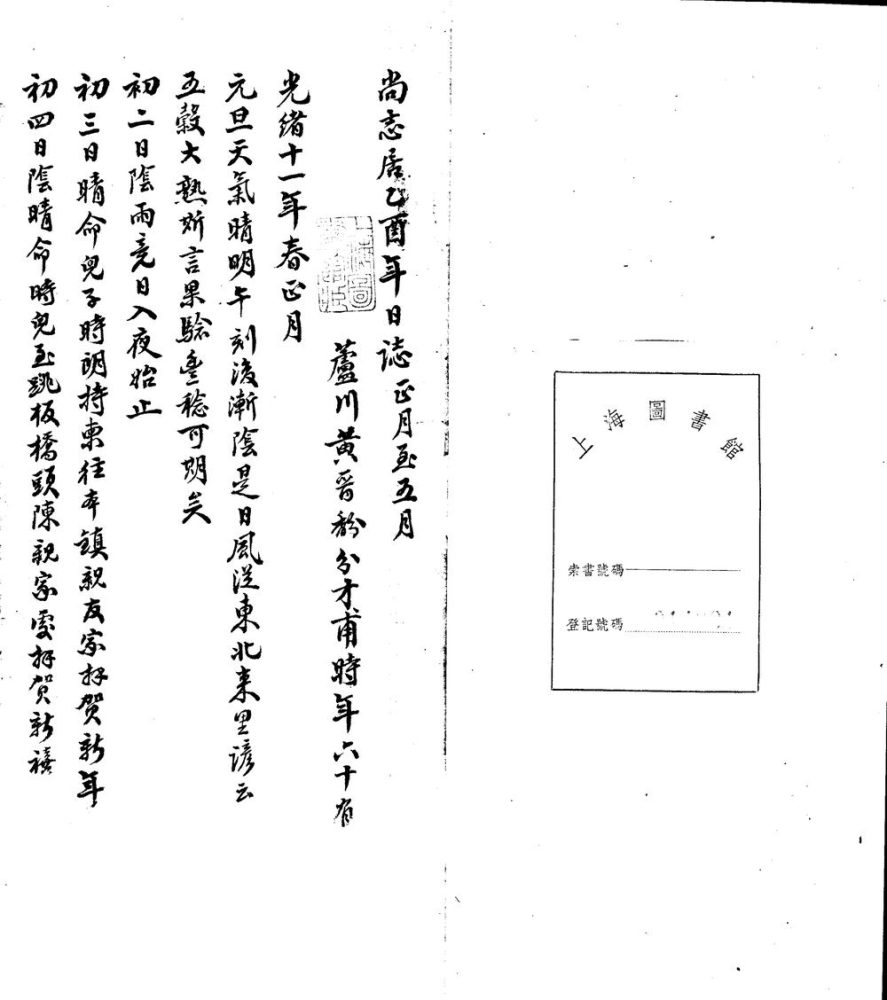 尚志居乙酉年日誌正月至五月
蘆川黃晉馚分才甫時年六十有
光緒十一年春正月
元旦天氣晴明午刻後漸陰是日風從東北來里諺云
五穀大熟斯言果驗豐稔可期矣
初二日陰雨竟日入夜始止
初三日晴命兒子時朗持柬往本鎮親友家拜賀新年
初四日陰晴命時兒至跳板橋頭陳親家處拜賀新禧
上海圖書館
索書號碼
登記號碼